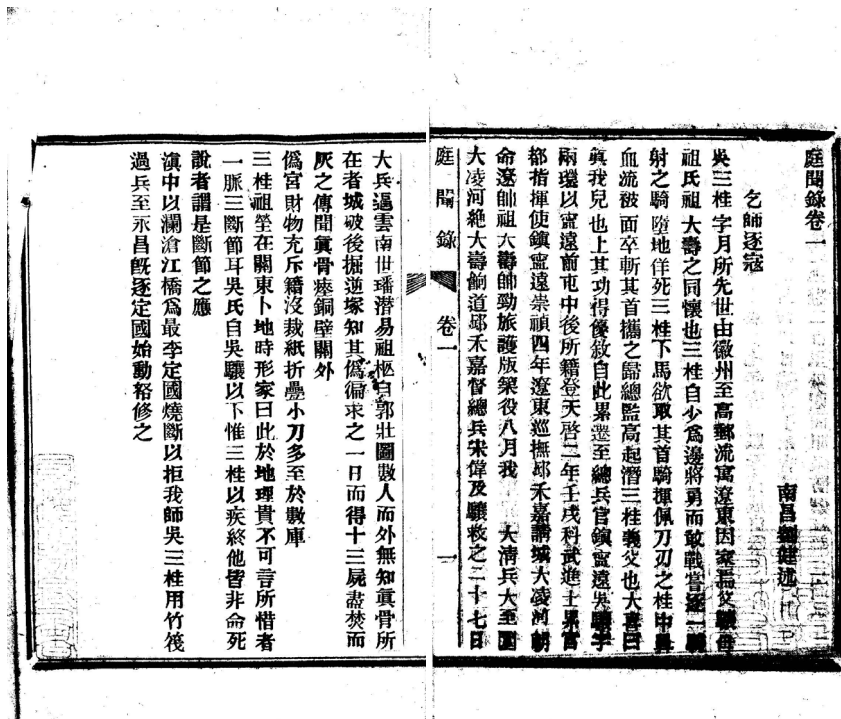 庭聞錄卷一
南昌劉健述
乞師逐寇
吳三桂字月所先世由徽州至高郵流寓遼東因家焉父驤母
祖氏祖大壽之同懷也三桂自少爲邊將勇而敢戰嘗逐一騎
射之騎墮地佯死三桂下馬欲取其首騎揮佩刀刃之桂中鼻
血流被面卒斬其首攜之歸總監高起潛三桂義父也大喜曰
眞我兒也上其功得優敘自此累遷至總兵官鎭甯遠吳驤字
兩環以甯遠前屯中後所籍登天啓二年壬戌科武進士累官
都指揮使鎭甯遠崇禎四年遼東巡撫邱禾嘉請城大凌河朝
命遼帥祖大壽帥勁旅護版築役八月我 大淸兵大至圍
大凌河絶大壽餉道邱禾嘉督總兵宋偉及驤救之二十七日
庭聞錄 卷一 一
大兵逼雲南世璠潛易祖柩自郭壯圖數人而外無知眞骨所
在者城破後掘逆塚知其僞徧求之一日而得十三屍盡焚而
灰之傳聞眞骨瘞銅壁關外
僞宮財物充斥籍沒裁紙折疊小刀多至於數庫
三桂祖塋在關東卜地時形家曰此於地理貴不可言所惜者
一脈三斷節耳吳氏自吳驤以下惟三桂以疾終他皆非命死
說者謂是斷節之應
滇中以瀾滄江橋爲最李定國燒斷以拒我師吳三桂用竹筏
過兵至永昌旣逐定國始動帑修之